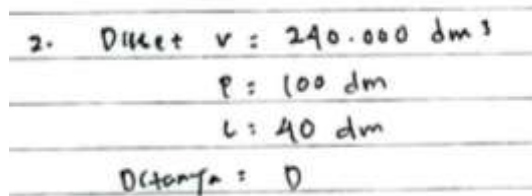 2. Diket v : 240.000 dm³
P : 100 dm
L : 40 dm
Ditanya : D